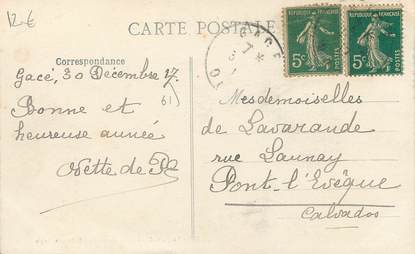 12€
CARTE POSTALE
Correspondance
Gacé, 30 Décembre 17
(61)
Bonne et
heureuse année
Odette de
Mesdemoiselles
de Lavarande
rue Launay
Pont-l'Evêque
Calvados
GACE
REPUBLIQUE FRANÇAISE
5c
POSTES
REPUBLIQUE FRANÇAISE
5c
POSTES